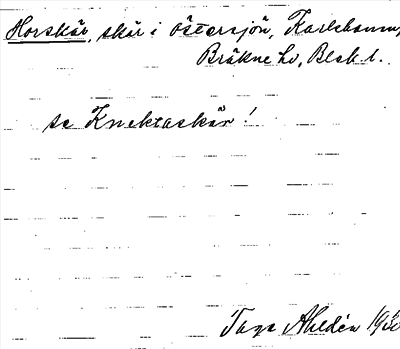 Horskär, skär i Östersjön, Karlshamn,
Bräkne hd, Blek. l.
se Knektaskär!
Tage Ahldén 193